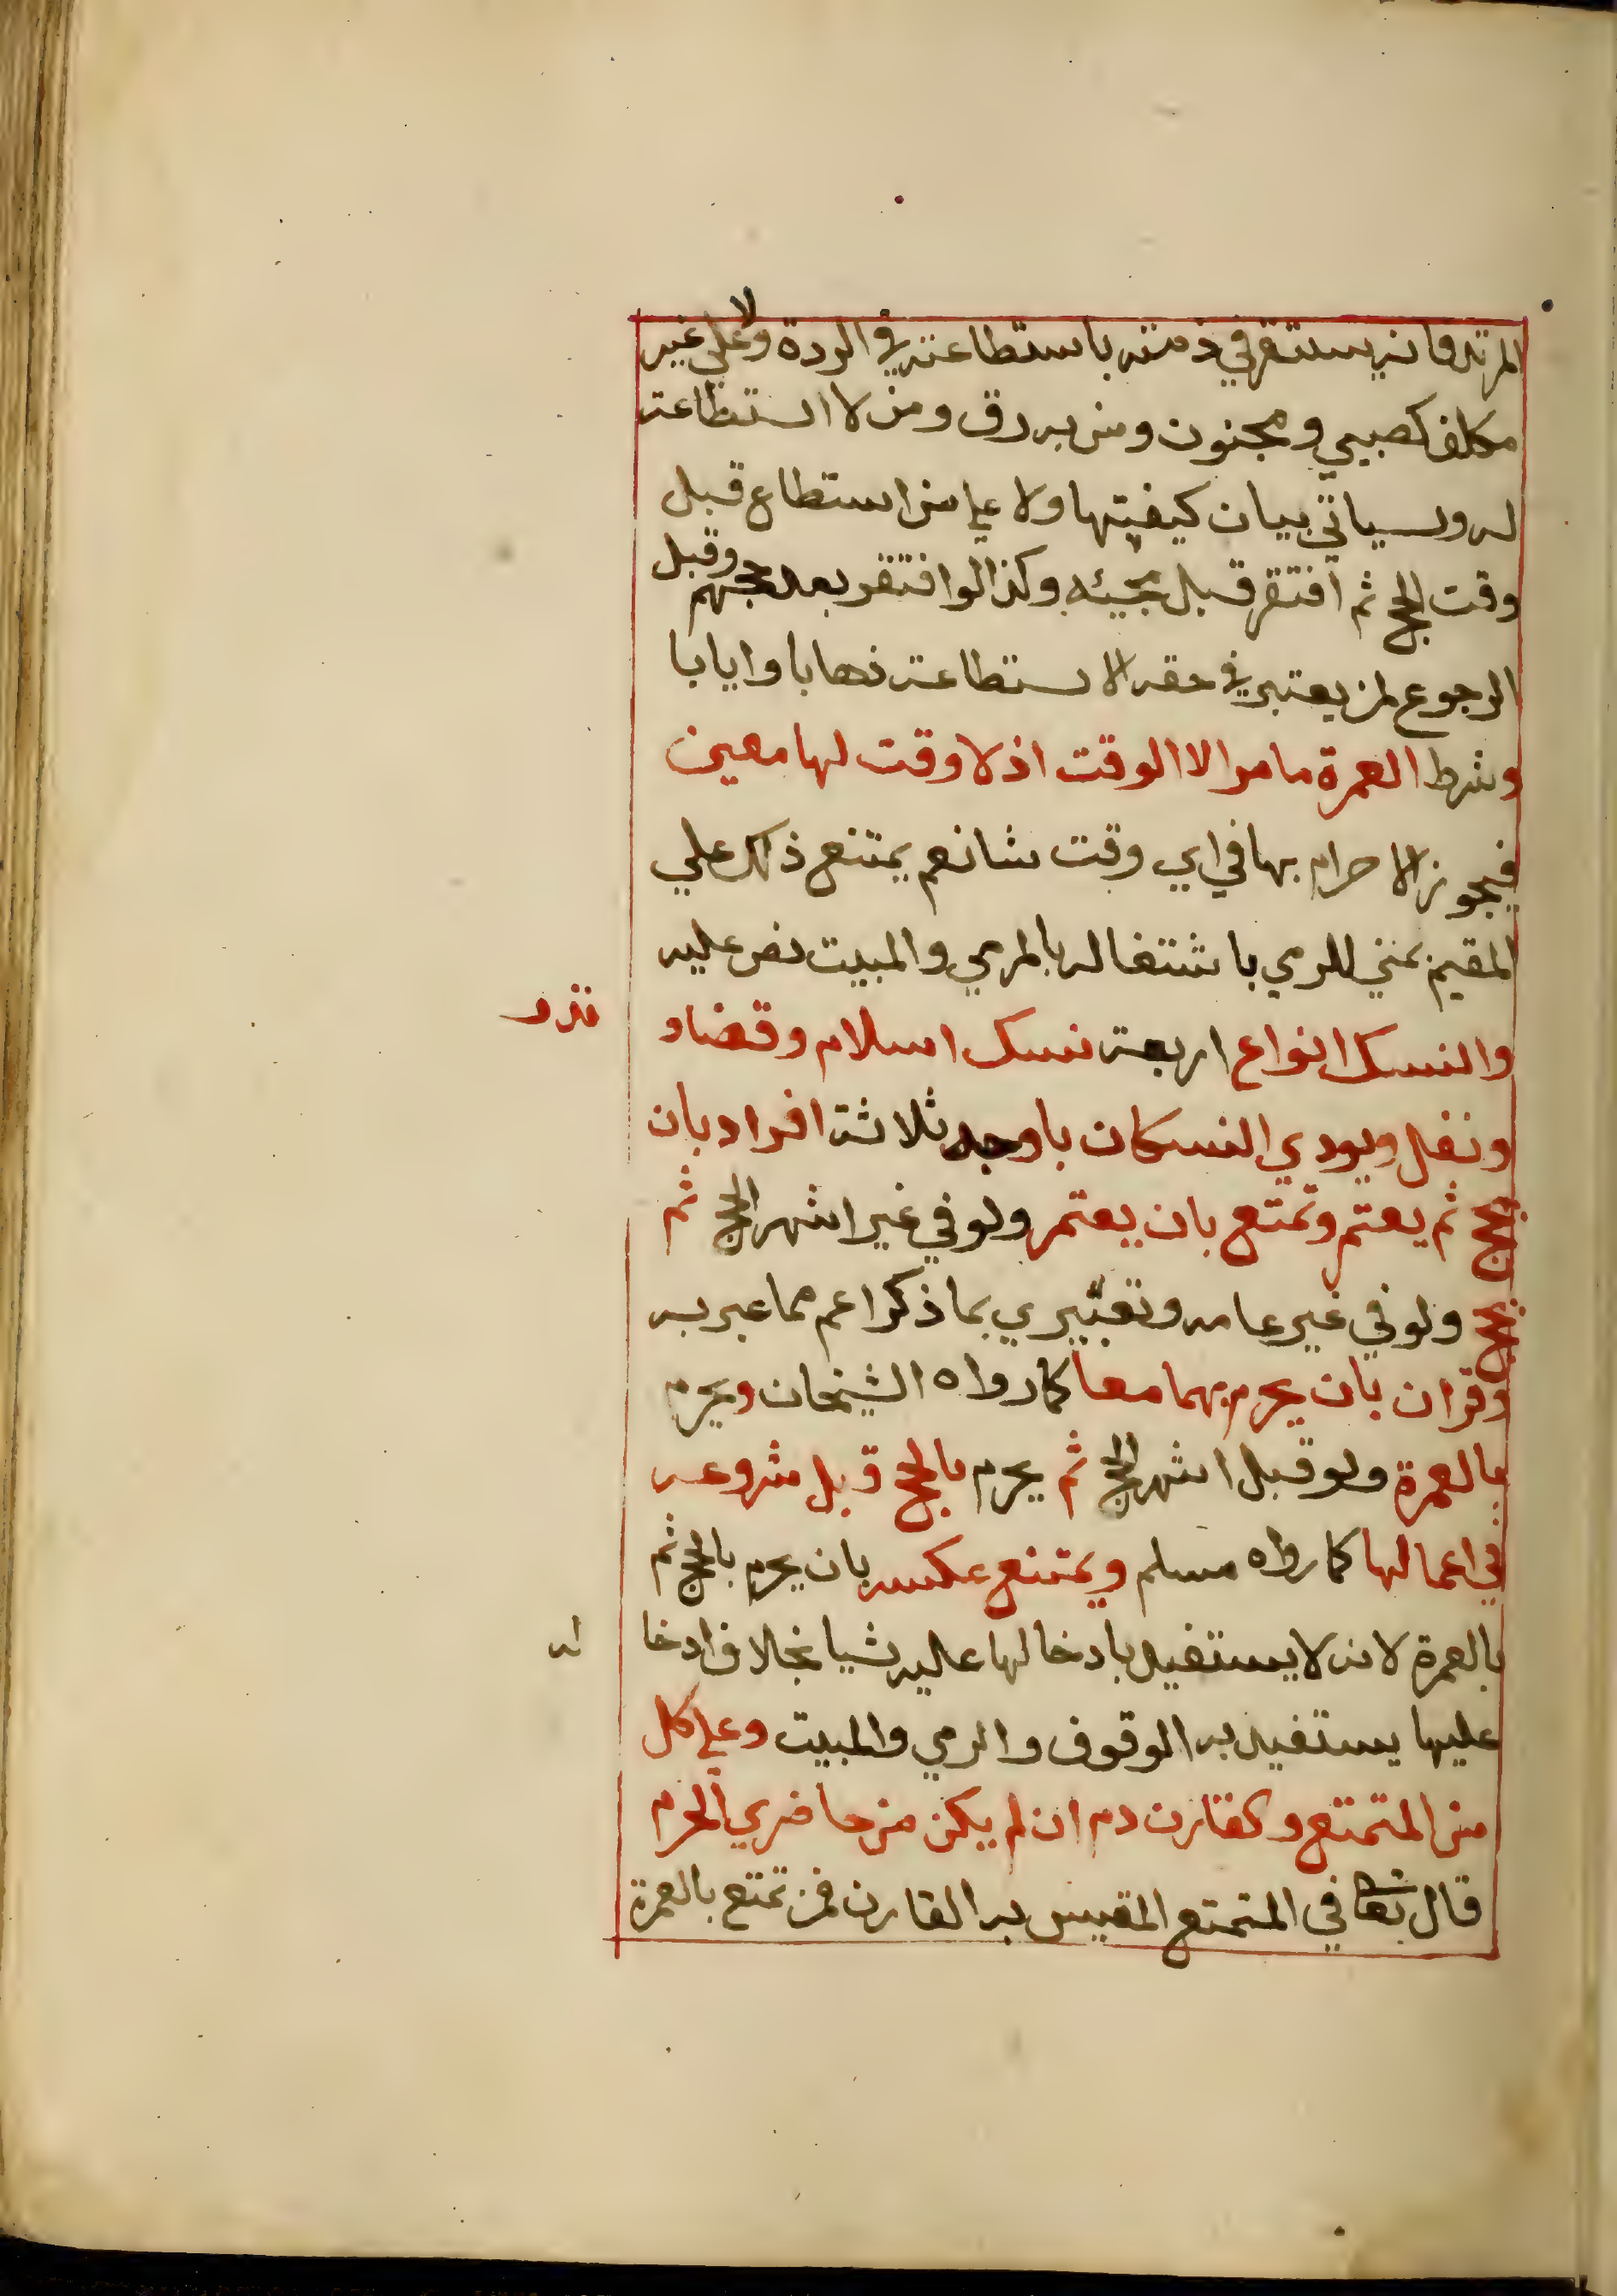 المرتد فانه يستقر في ذمته باستطاعته في الردة ولا علي غير
مكلف كصبي ومجنون ومن به رق ومن لا استطاعة
له وسياتي بيان كيفيتها ولا علي من استطاع قبل
وقت الحج ثم افتقر قبل مجيئه وكذا لو افتقر بعد حجهم وقبل
الرجوع لمن يعتبر في حقه الاستطاعة ذهابا وايابا
وشرط العمرة ما مر الا الوقت اذ لا وقت لها معين
فيجوز الاحرام بها في اي وقت شا نعم يمتنع ذلك علي
المقيم بمني للرمي باشتغاله بالرمي والمبيت نص عليه
والنسك انواع اربعة نسك اسلام وقضا و نذر و
ونفل ويودي النسكان باوجه ثلاثة افراد بان
يحج ثم يعتمر وتمتع بان يعتمر ولو في غير اشهر الحج ثم
يحج ولو في غير عامه وتعبيري بما ذكر اعم مما عبر به
وقران بان يحرم بهما معا كما رواه الشيخان ويحرم
بالعمرة ولو قبل اشهر الحج ثم يحرم بالحج قبل شروعه
في اعمالها كما رواه مسلم ويمتنع عكسه بان يحرم بالحج ثم
بالعمرة لانه لا يستفيد بادخالها عليه شيا بخلاف ادخا له
عليها يستفيد به الوقوف والرمي والمبيت وعلي كل
من المتمتع والقارن دم ان لم يكن من حاضري الحرم
قال تعا في المتمتع المقيس به القارن فمن تمتع بالعمرة